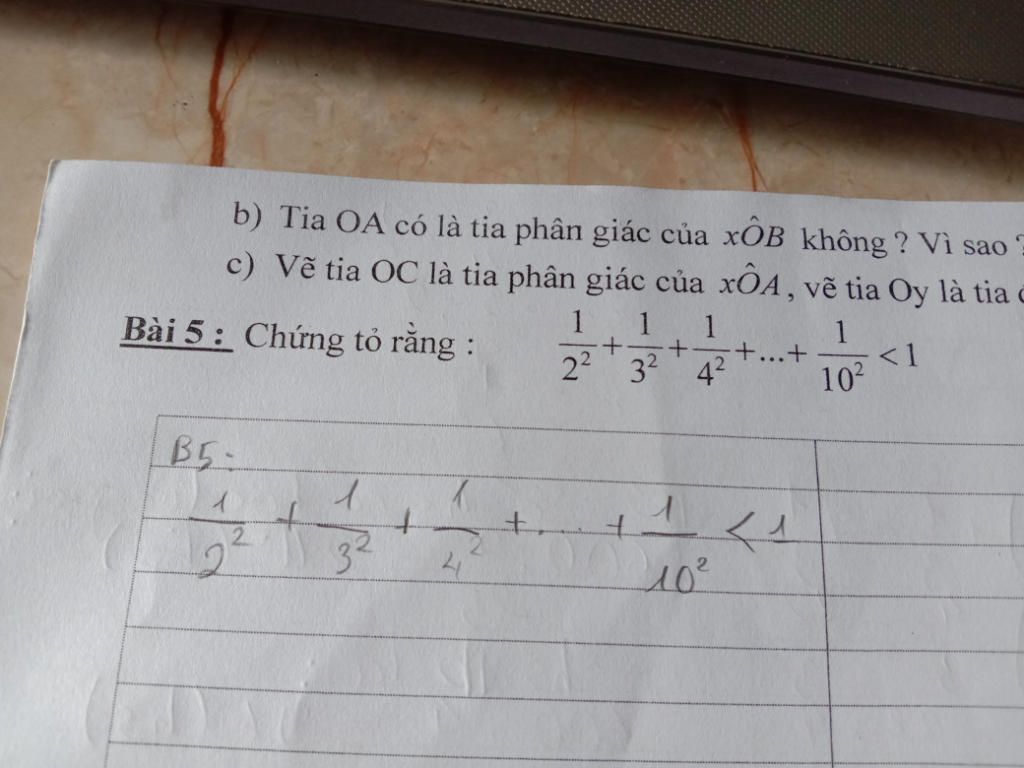 b) Tia OA có là tia phân giác của xÔB không ? Vì sao ?
c) Vẽ tia OC là tia phân giác của xÔA, vẽ tia Oy là tia
Bài 5 : Chứng tỏ rằng : 1/2² + 1/3² + 1/4² + ... + 1/10² < 1
B5:
1/2² + 1/3² + 1/4² + ... + 1/10² < 1